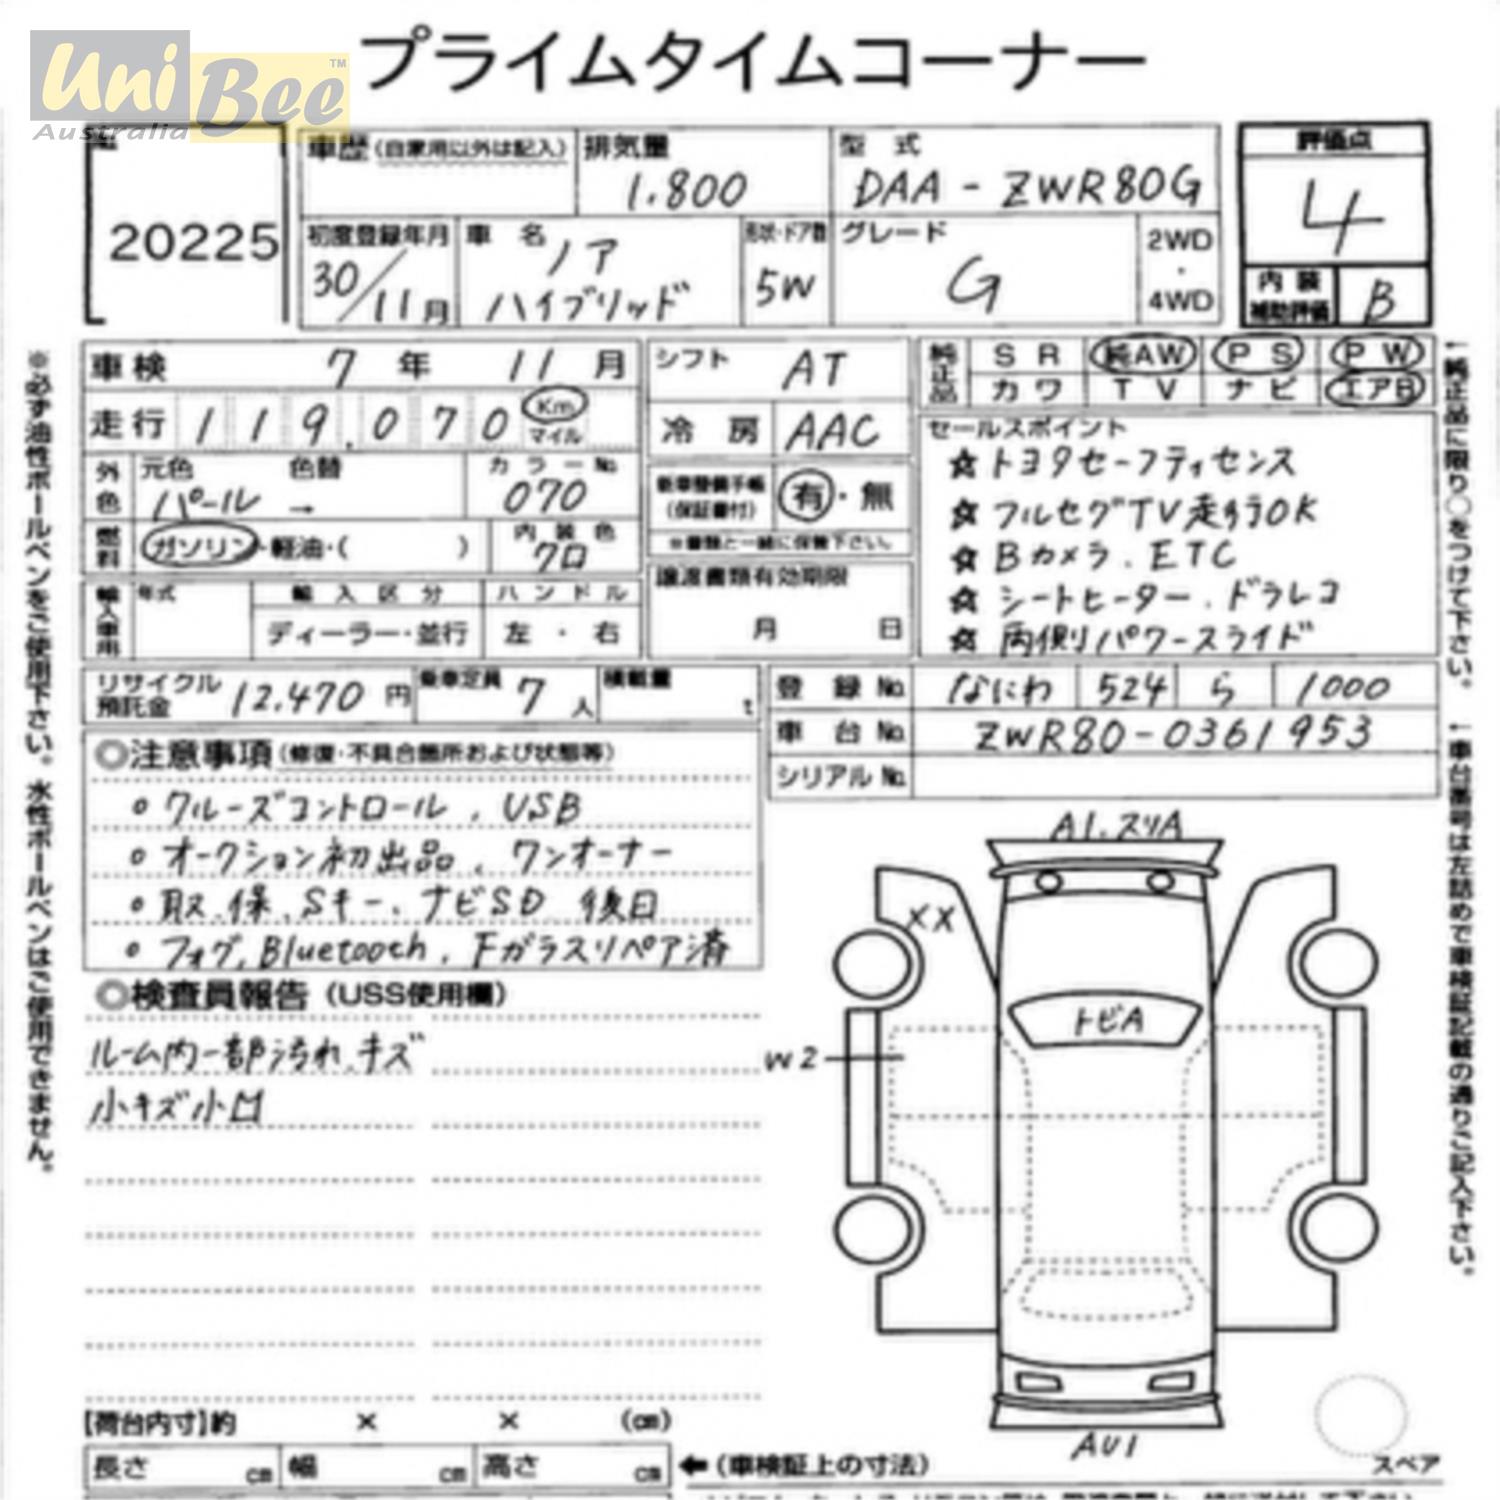 Uni Bee™
Australia
プライムタイムコーナー
20225
車歴（自家用以外は記入） 排気量 型式
1.800 DAA-ZWR80G
評価点
4
内装補助評価 B
初度登録年月 車名 形状・ドア数 グレード
30/11月 ノア ハイブリッド 5W G 2WD・4WD
車検 7年 11月 シフト AT
純正品 SR 純AW PS PW
カワ TV ナビ エアB
走行 119.070 Km マイル 冷房 AAC
セールスポイント
☆トヨタセーフティセンス
☆フルセグTV走行OK
☆Bカメラ.ETC
☆シートヒーター.ドラレコ
☆両側パワースライド
外色 元色 色替 カラーNo.
パール → 070
新車整備手帳（保証書付） 有・無
※書類と一緒に保管下さい。
燃料 ガソリン・軽油・（ ） 内装色 クロ
譲渡書類有効期限
月 日
輸入車用 年式 輸入区分 ハンドル
ディーラー・並行 左・右
リサイクル預託金 12.470円 乗車定員 7人 積載量 t
登録No. なにわ 524 ら 1000
車台No. ZWR80-0361953
シリアルNo.
◎注意事項（修復・不具合箇所および状態等）
○クルーズコントロール、USB
○オークション初出品、ワンオーナー
○取.保.Sキー.ナビSD 後日
○フォグ,Bluetooth.Fガラスリペア済
◎検査員報告（USS使用欄）
ルーム内一部汚れ.キズ
小キズ小凹
A1.スリA
XX
トビA
W2
AU1
スペア
【荷台内寸】約 × × （cm）
長さ cm 幅 cm 高さ cm ←（車検証上の寸法）
※必ず油性ボールペンをご使用下さい。水性ボールペンはご使用できません。
←純正品に限り○をつけて下さい。
←車台番号は左詰めで車検証記載の通りご記入下さい。